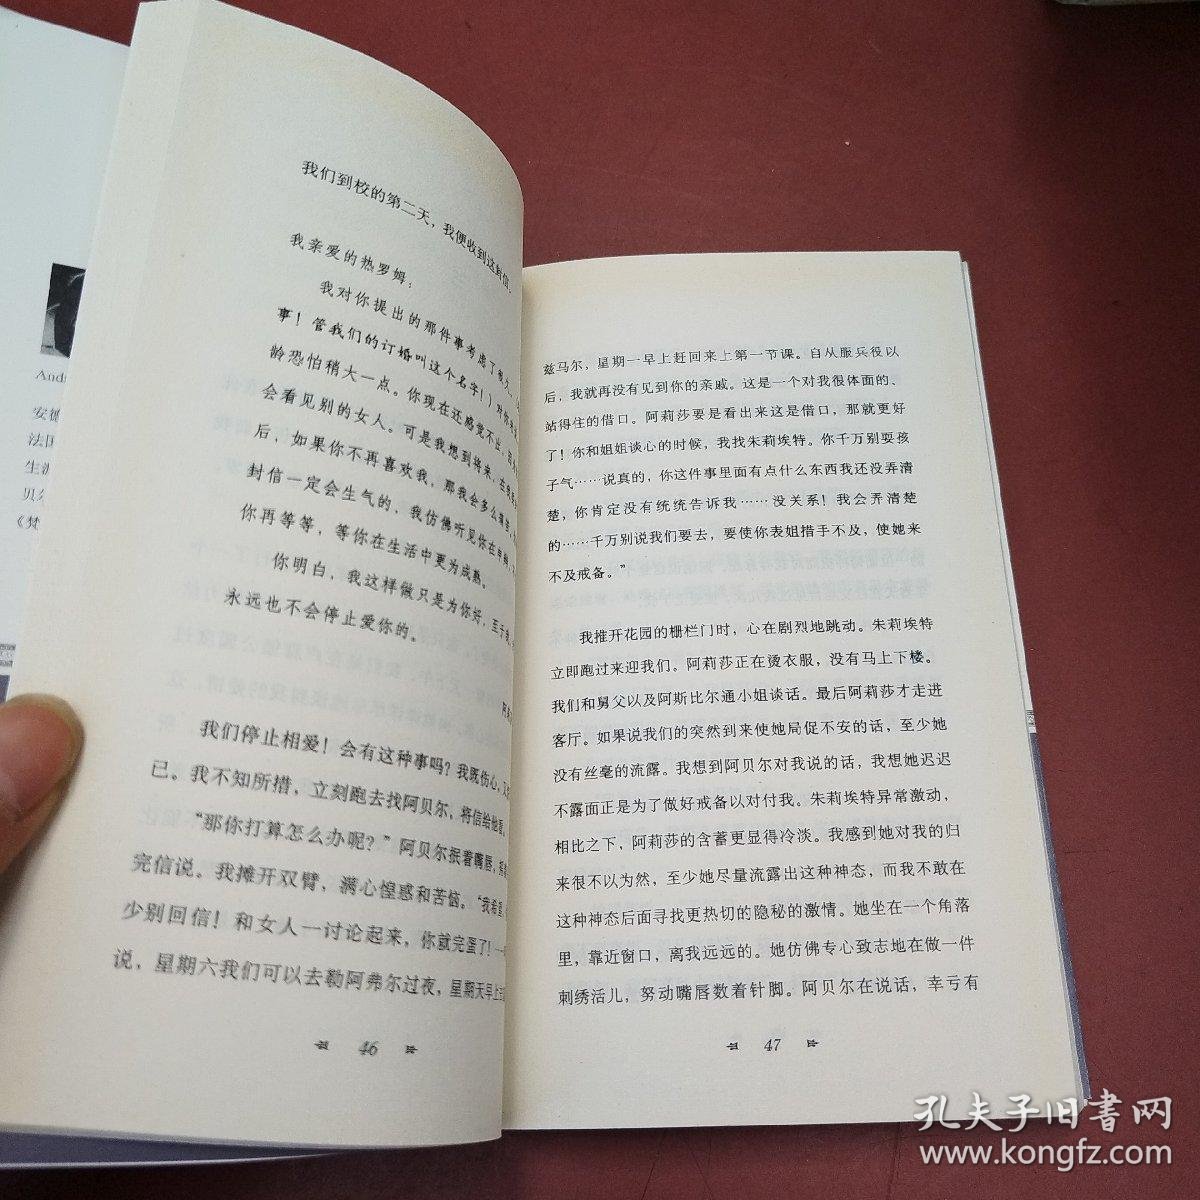 Andr
安德
法国
生涯
贝尔
《梵
我们到校的第二天，我便收到这封信。
我亲爱的热罗姆：
我对你提出的那件事考虑了很久。
事！管我们的订婚叫这个名字！）对你
龄恐怕稍大一点。你现在还感觉不出，因
会看见别的女人。可是我想到将来，在我
后，如果你不再喜欢我，那我会多么痛苦
封信一定会生气的，我仿佛听见你在申辩
你再等等，等你在生活中更为成熟。
你明白，我这样做只是为你好，至于我，
永远也不会停止爱你的。
阿
我们停止相爱！会有这种事吗？我既伤心，又
已。我不知所措，立刻跑去找阿贝尔，将信给他看。
“那你打算怎么办呢？”阿贝尔抿着嘴唇，摇着
完信说。我摊开双臂，满心惶惑和苦恼。“我希望
少别回信！和女人一讨论起来，你就完蛋了！
说，星期六我们可以去勒阿弗尔过夜，星期天早上去
46
兹马尔，星期一早上赶回来上第一节课。自从服兵役以
后，我就再没有见到你的亲戚。这是一个对我很体面的、
站得住的借口。阿莉莎要是看出来这是借口，那就更好
了！你和姐姐谈心的时候，我找朱莉埃特。你千万别耍孩
子气……说真的，你这件事里面有点什么东西我还没弄清
楚，你肯定没有统统告诉我……没关系！我会弄清楚
的……千万别说我们要去，要使你表姐措手不及，使她来
不及戒备。”
我推开花园的栅栏门时，心在剧烈地跳动。朱莉埃特
立即跑过来迎我们。阿莉莎正在烫衣服，没有马上下楼。
我们和舅父以及阿斯比尔通小姐谈话。最后阿莉莎才走进
客厅。如果说我们的突然到来使她局促不安的话，至少她
没有丝毫的流露。我想到阿贝尔对我说的话，我想她迟迟
不露面正是为了做好戒备以对付我。朱莉埃特异常激动，
相比之下，阿莉莎的含蓄更显得冷淡。我感到她对我的归
来很不以为然，至少她尽量流露出这种神态，而我不敢在
这种神态后面寻找更热切的隐秘的激情。她坐在一个角落
里，靠近窗口，离我远远的。她仿佛专心致志地在做一件
刺绣活儿，努动嘴唇数着针脚。阿贝尔在说话，幸亏有
47
孔夫子旧書网
www.kongfz.com